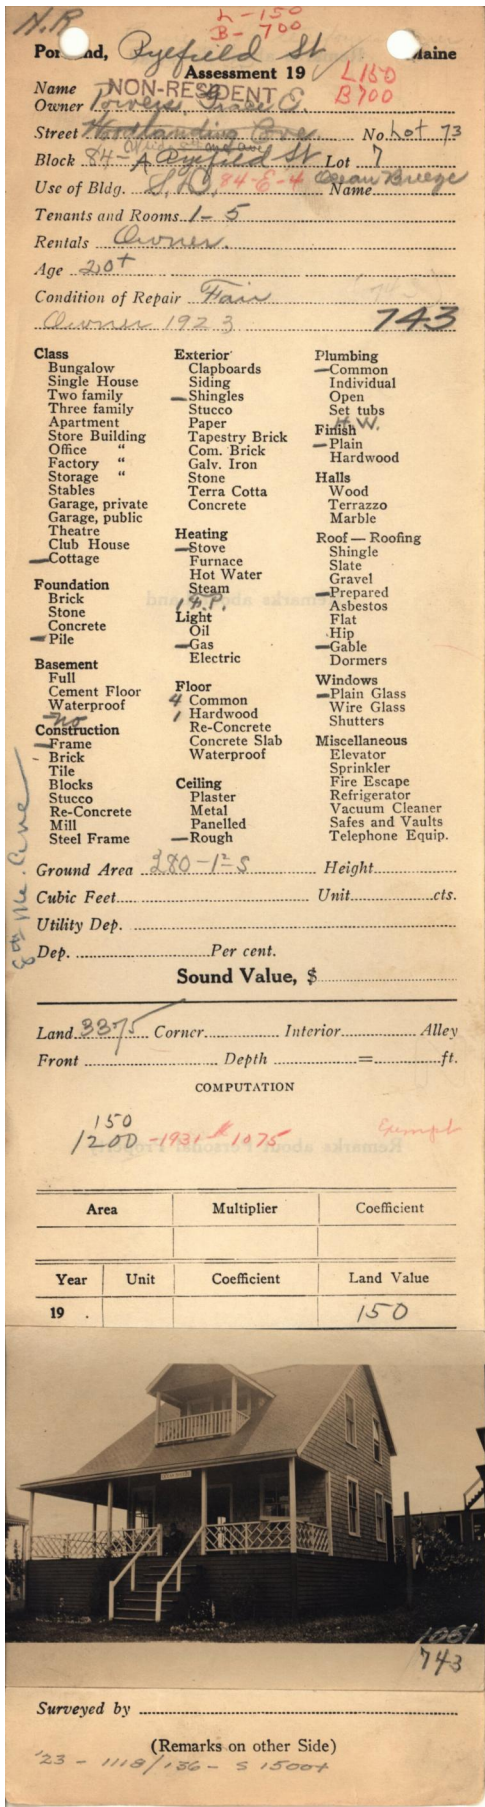 N.R
L-150
B-700
Portland, Ryefield St Maine
Assessment 19
L150
B700
NON-RESIDENT
Name
Owner Powers, Grace E.
Street Woodlanding Cove No. Lot 73
Block 84-A Ryefield St Lot 7
Use of Bldg. S.D. 84-E-4 Name Ocean Breeze
Tenants and Rooms 1-5
Rentals Owner.
Age 20+
Condition of Repair Fair
Owner 1923 743
Class
Bungalow
Single House
Two family
Three family
Apartment
Store Building
Office "
Factory "
Storage "
Stables
Garage, private
Garage, public
Theatre
Club House
Cottage
Foundation
Brick
Stone
Concrete
Pile
Basement
Full
Cement Floor
Waterproof
no
Construction
Frame
Brick
Tile
Blocks
Stucco
Re-Concrete
Mill
Steel Frame
Exterior
Clapboards
Siding
Shingles
Stucco
Paper
Tapestry Brick
Com. Brick
Galv. Iron
Stone
Terra Cotta
Concrete
Heating
Stove
Furnace
Hot Water
Steam
1 F.P.
Light
Oil
Gas
Electric
Floor
4 Common
1 Hardwood
Re-Concrete
Concrete Slab
Waterproof
Ceiling
Plaster
Metal
Panelled
Rough
Plumbing
Common
Individual
Open
Set tubs
H.W.
Finish
Plain
Hardwood
Halls
Wood
Terrazzo
Marble
Roof — Roofing
Shingle
Slate
Gravel
Prepared
Asbestos
Flat
Hip
Gable
Dormers
Windows
Plain Glass
Wire Glass
Shutters
Miscellaneous
Elevator
Sprinkler
Fire Escape
Refrigerator
Vacuum Cleaner
Safes and Vaults
Telephone Equip.
8th Me. Ave
Ground Area 280-1½ S Height
Cubic Feet Unit cts.
Utility Dep.
Dep. Per cent.
Sound Value, $
Land 3375 Corner Interior Alley
Front Depth = ft.
COMPUTATION
150
1200 -1931- 1075 Exempt
Area Multiplier Coefficient
Year Unit Coefficient Land Value
19 . 150
1081
743
Surveyed by
(Remarks on other Side)
'23 - 1118/136 - S 1500+